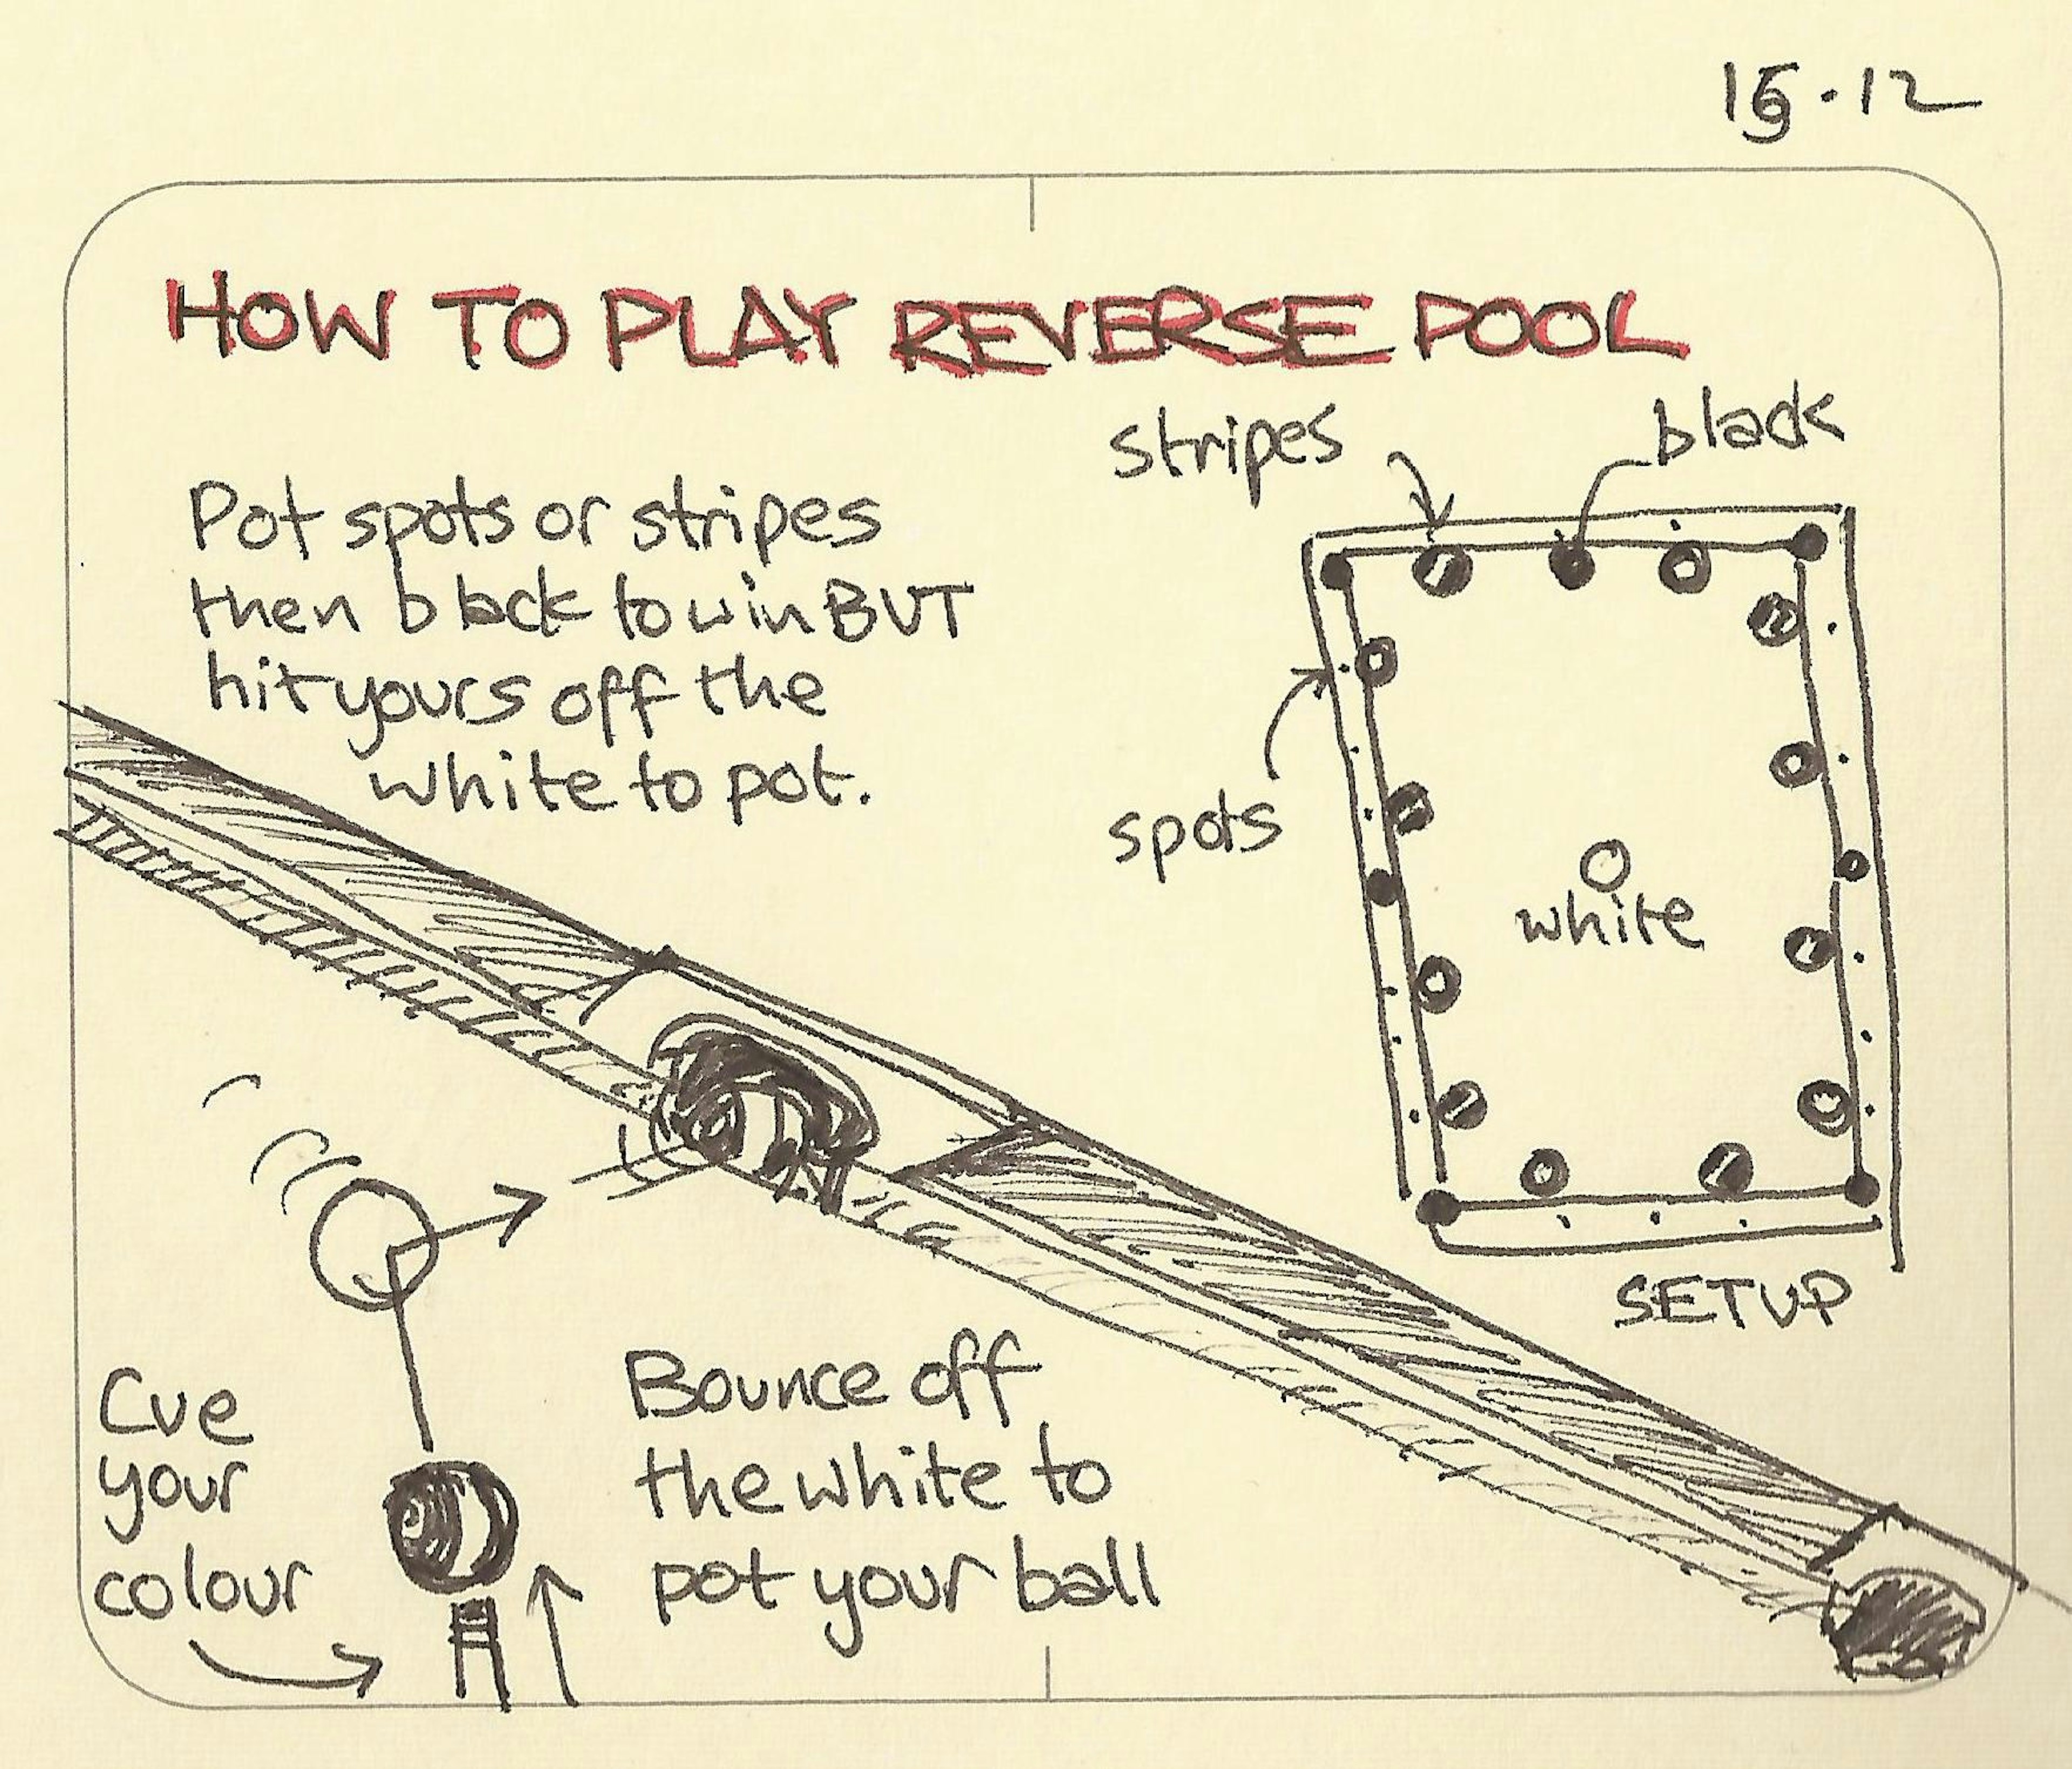 HOW TO PLAY REVERSE POOL
Pot spots or stripes
then black to win BUT
hit yours off the
white to pot.
stripes
black
spots
white
SETUP
Cue
your
colour
Bounce off
the white to
pot your ball